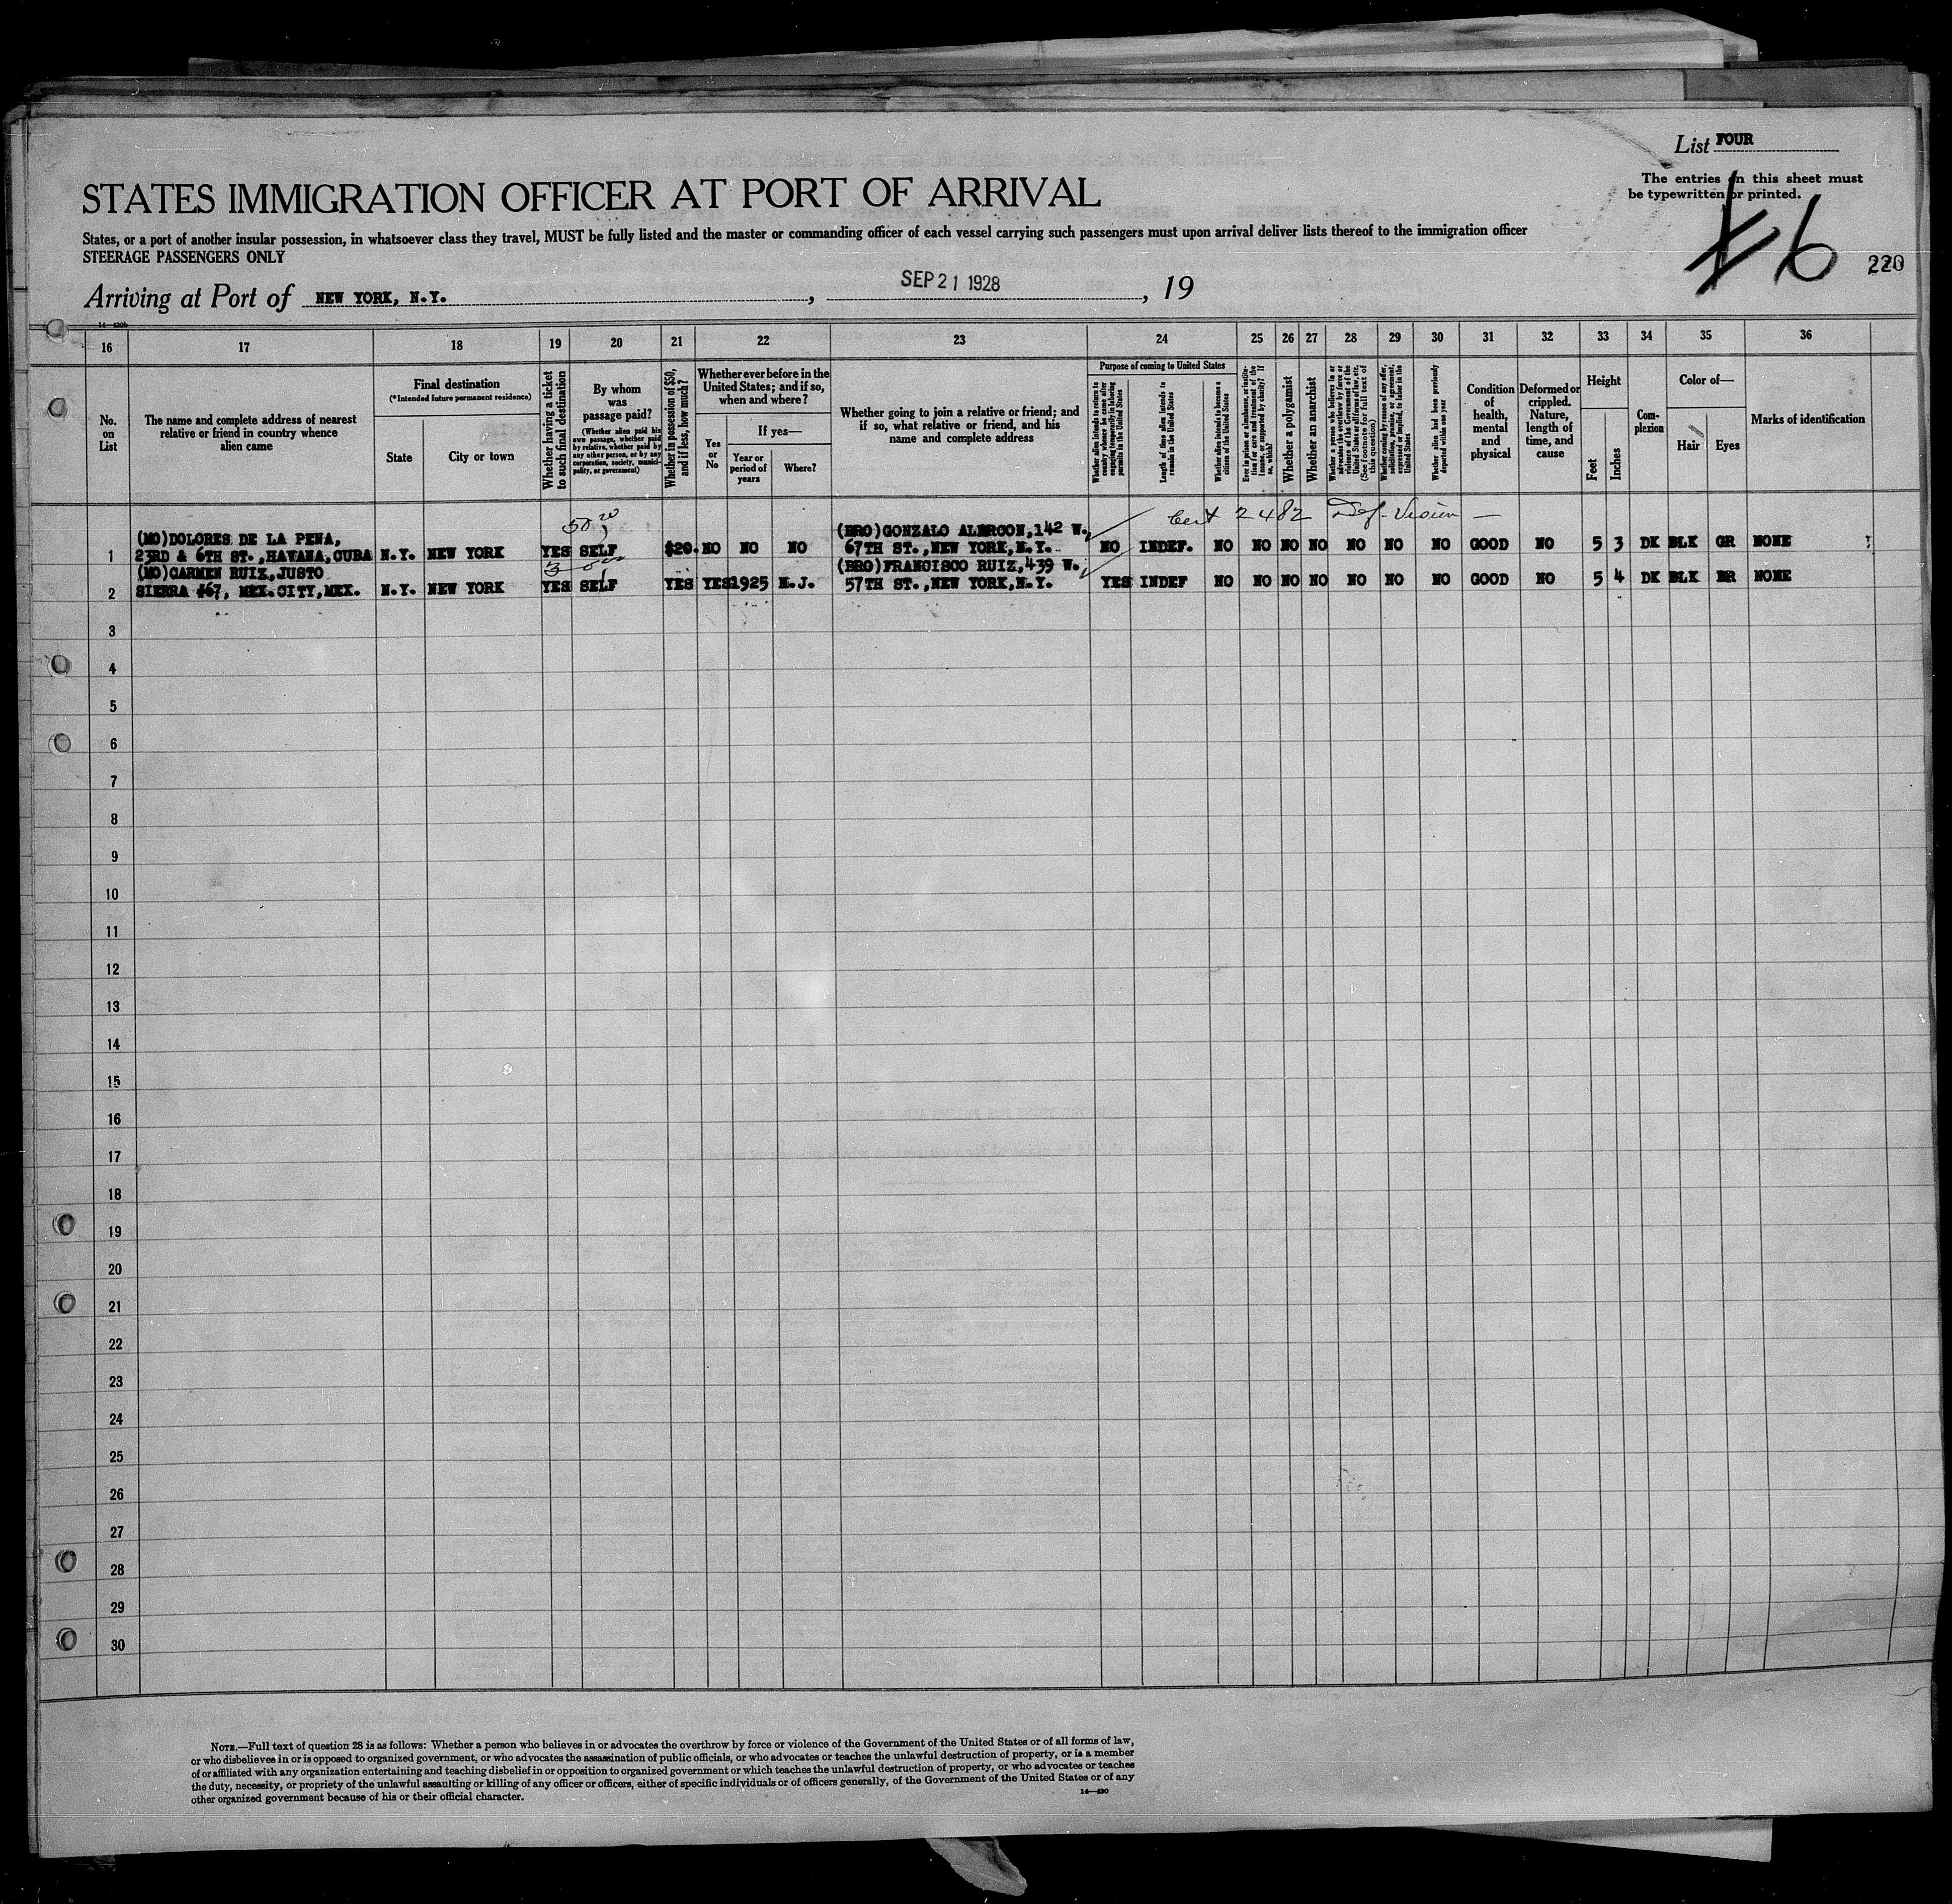 List FOUR
The entries on this sheet must
be typewritten or printed.
6
220
STATES IMMIGRATION OFFICER AT PORT OF ARRIVAL
States, or a port of another insular possession, in whatsoever class they travel, MUST be fully listed and the master or commanding officer of each vessel carrying such passengers must upon arrival deliver lists thereof to the immigration officer
STEERAGE PASSENGERS ONLY
Arriving at Port of NEW YORK, N.Y. , SEP 21 1928 , 19
14—430b
16 17 18 19 20 21 22 23 24 25 26 27 28 29 30 31 32 33 34 35 36
No. on List
The name and complete address of nearest
relative or friend in country whence
alien came
Final destination
(*Intended future permanent residence)
State
City or town
Whether having a ticket
to such final destination
By whom
was
passage paid?
(Whether alien paid his
own passage, whether paid
by relative, whether paid by
any other person, or by any
corporation, society, munici-
pality, or government)
Whether in possession of $50,
and if less, how much?
Whether ever before in the
United States; and if so,
when and where?
Yes
or
No
If yes—
Year or
period of
years
Where?
Whether going to join a relative or friend; and
if so, what relative or friend, and his
name and complete address
Purpose of coming to United States
Whether alien intends to return to
country whence he came after
engaging temporarily in laboring
pursuits in the United States
Length of time alien intends to
remain in the United States
Whether alien intends to become a
citizen of the United States
Ever in prison or almshouse, or institu-
tion for care and treatment of the
insane, or supported by charity? If
so, which?
Whether a polygamist
Whether an anarchist
Whether a person who believes in or
advocates the overthrow by force or
violence of the Government of the
United States or all forms of law, etc.
(See footnote for full text of
this question)
Whether coming by reason of any offer,
solicitation, promise, or agreement,
expressed or implied, to labor in the
United States
Whether alien had been previously
deported within one year
Condition
of
health,
mental
and
physical
Deformed or
crippled.
Nature,
length of
time, and
cause
Height
Feet
Inches
Com-
plexion
Color of—
Hair
Eyes
Marks of identification
Cert 2482 Def. Vision —
1 (MO)DOLORES DE LA PENA,
23RD & 6TH ST.,HAVANA,CUBA N.Y. NEW YORK YES SELF $20. NO NO NO (BRO)GONZALO ALERCON,142 W.
67TH ST.,NEW YORK,N.Y. NO INDEF. NO NO NO NO NO NO NO GOOD NO 5 3 DK BLK GR NONE
2 (MO)CARMEN RUIZ,JUSTO
SIERRA #67, MEX.CITY,MEX. N.Y. NEW YORK YES SELF YES YES 1925 N.J. (BRO)FRANCISCO RUIZ,439 W.
57TH ST.,NEW YORK,N.Y. YES INDEF NO NO NO NO NO NO NO GOOD NO 5 4 DK BLK BR NONE
3
4
5
6
7
8
9
10
11
12
13
14
15
16
17
18
19
20
21
22
23
24
25
26
27
28
29
30
NOTE.—Full text of question 28 is as follows: Whether a person who believes in or advocates the overthrow by force or violence of the Government of the United States or of all forms of law,
or who disbelieves in or is opposed to organized government, or who advocates the assassination of public officials, or who advocates or teaches the unlawful destruction of property, or is a member
of or affiliated with any organization entertaining and teaching disbelief in or opposition to organized government or which teaches the unlawful destruction of property, or who advocates or teaches
the duty, necessity, or propriety of the unlawful assaulting or killing of any officer or officers, either of specific individuals or of officers generally, of the Government of the United States or of any
other organized government because of his or their official character.
14—430